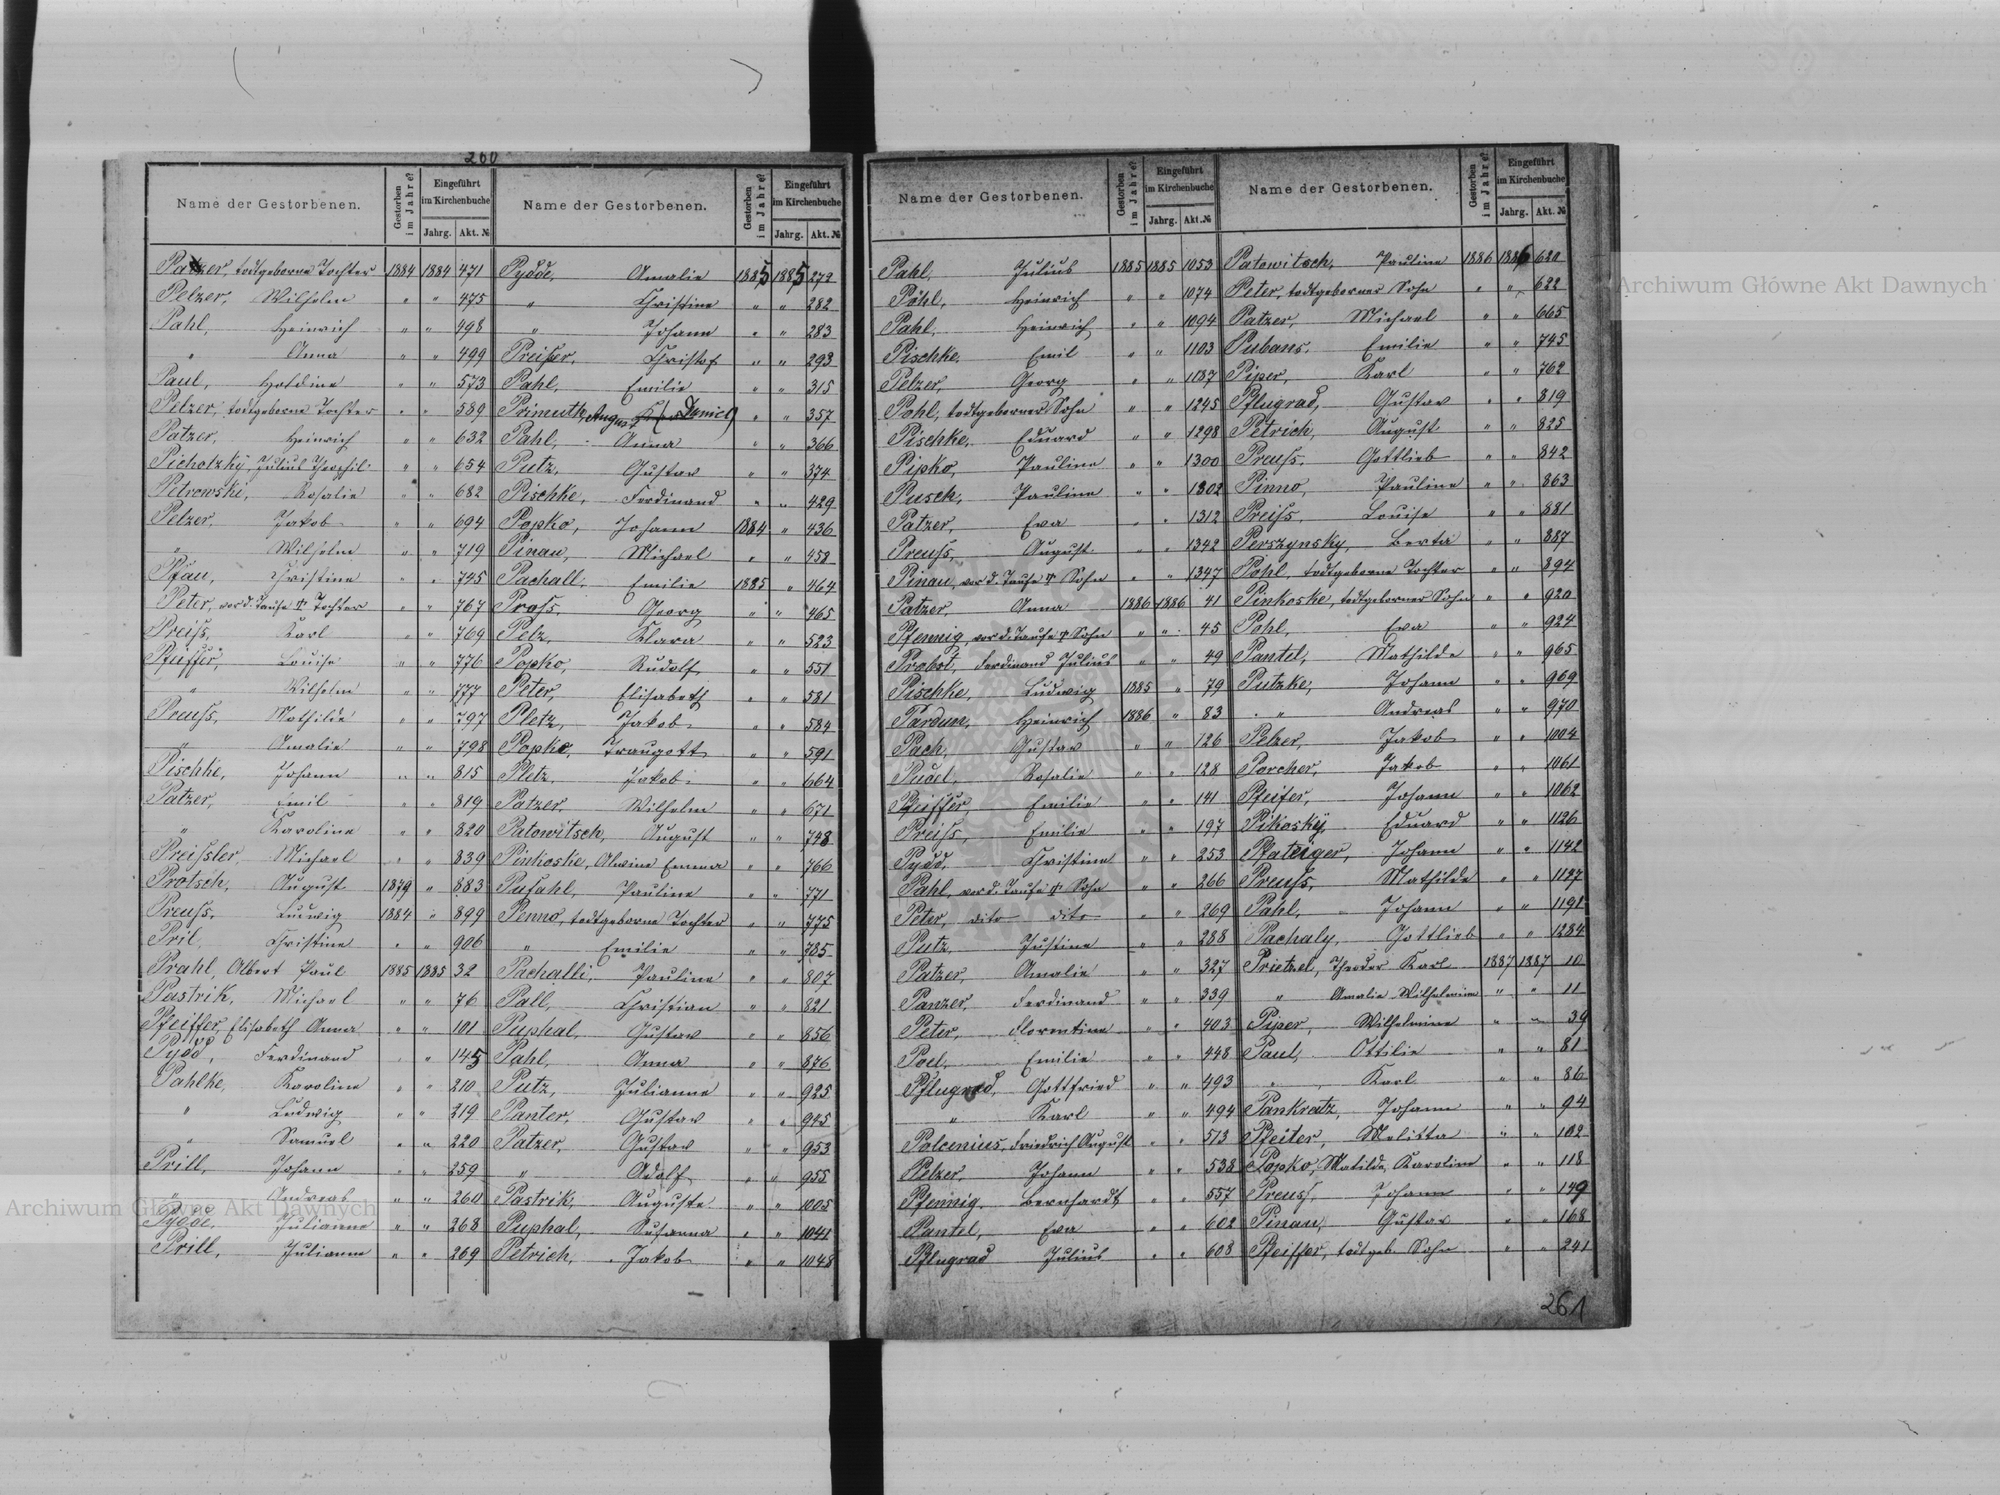 260
Name der Gestorbenen. Gestorben im Jahre? Eingeführt im Kirchenbuche Jahrg. Akt. №
Patzer, todtgeborne Tochter 1884 1884 471
Pelzer, Wilhelm " " 475
Pahl, Heinrich " " 498
" Anna " " 499
Paul, " " 573
Pelzer, todtgeborne Tochter " " 589
Patzer, Heinrich " " 632
Pichotzky, Julius Theophil " " 654
Petrowski, Rosalie " " 682
Pelzer, Jakob " " 694
" Wilhelm " " 719
Pfau, Christine " " 745
Peter, vor d. Taufe † Tochter " " 767
Preiss, Karl " " 769
Pfeiffer, Louise " " 776
" Wilhelm " " 777
Preuss, Mathilde " " 797
" Amalie " " 798
Pischke, Johann " " 815
Patzer, Emil " " 819
" Karoline " " 820
Preissler, Michael " " 839
Protsch, August 1879 " 883
Preuss, Ludwig 1884 " 899
Pril, Christine " " 906
Prahl, Albert Paul 1885 1885 32
Pastrik, Michael " " 76
Pfeiffer, Elisabeth Anna " " 101
Pydd, Ferdinand " " 145
Pahlke, Karoline " " 210
" Ludwig " " 219
" Samuel " " 220
Prill, Johann " " 259
" Andreas " " 260
Pydde, Julianne " " 268
Prill, Julianne " " 269
Name der Gestorbenen. Gestorben im Jahre? Eingeführt im Kirchenbuche Jahrg. Akt. №
Pydde, Amalie 1885 1885 272
" Christine " " 282
" Johann " " 283
Preisser, Christof " " 293
Pahl, Emilie " " 315
Primuth, August (Daniel) " " 357
Pahl, Anna " " 366
Putz, Gustav " " 374
Pischke, Ferdinand " " 429
Popko, Johann 1884 " 436
Pinau, Michael " " 458
Pachall, Emilie 1885 " 464
Pross, Georg " " 465
Pelz, Klara " " 523
Popko, Rudolf " " 551
Peter, Elisabeth " " 581
Pletz, Jakob " " 584
Popko, Traugott " " 591
Pletz, Jakob " " 664
Patzer, Wilhelm " " 671
Patowitsch, August " " 748
Pinkoske, Alwine Emma " " 766
Pufahl, Pauline " " 771
Penno, todtgeborne Tochter " " 775
" Emilie " " 785
Pachalli, Pauline " " 807
Pall, Christian " " 821
Puphal, Gustav " " 856
Pahl, Anna " " 876
Putz, Julianne " " 925
Panter, Gustav " " 945
Patzer, Gustav " " 953
" Adolf " " 955
Pastrik, Auguste " " 1005
Puphal, Susanna " " 1041
Petrich, Jakob " " 1048
Name der Gestorbenen. Gestorben im Jahre? Eingeführt im Kirchenbuche Jahrg. Akt. №
Pahl, Julius 1885 1885 1053
Pöhl, Heinrich " " 1074
Pahl, Heinrich " " 1094
Pischke, Emil " " 1103
Pelzer, Georg " " 1187
Pohl, todtgeborner Sohn " " 1245
Pischke, Eduard " " 1298
Pipko, Pauline " " 1300
Pusch, Pauline " " 1302
Patzer, Eva " " 1312
Preuss, August " " 1342
Pinau, vor d. Taufe † Sohn " " 1347
Patzer, Anna 1886 1886 41
Pfennig, vor d. Taufe † Sohn " " 45
Probst, Ferdinand Julius " " 49
Pischke, Ludwig 1885 " 79
Pardun, Heinrich 1886 " 83
Pach, Gustav " " 126
Pudel, Rosalie " " 128
Pfeiffer, Emilie " " 141
Preiss, Emilie " " 197
Pydd, Christine " " 253
Pahl, vor d. Taufe † Sohn " " 266
Peter, dito dito " " 269
Putz, Justine " " 288
Patzer, Amalie " " 327
Panzer, Ferdinand " " 339
Peter, Florentine " " 403
Poel, Emilie " " 448
Pflugrad, Gottfried " " 493
" Karl " " 494
Polcenius, Friedrich August " " 513
Pelzer, Johann " " 538
Pfennig, Bernhardt " " 557
Pantel, Eva " " 602
Pflugrad Julius " " 608
Name der Gestorbenen. Gestorben im Jahre? Eingeführt im Kirchenbuche Jahrg. Akt. №
Patowitsch, Pauline 1886 1886 620
Peter, todtgeborner Sohn " " 622
Patzer, Michael " " 665
Pubans, Emilie " " 745
Piper, Karl " " 762
Pflugrad, Gustav " " 819
Petrich, August " " 825
Preuss, Gottlieb " " 842
Pinno, Pauline " " 863
Preiss, Louise " " 881
Perszynsky, Berta " " 887
Pohl, todtgeborne Tochter " " 894
Pinkoske, todtgeborner Sohn " " 920
Pohl, Eva " " 924
Pantel, Mathilde " " 965
Putzke, Johann " " 969
" Andreas " " 970
Pelzer, Jakob " " 1004
Porcher, Jakob " " 1061
Pfeifer, Johann " " 1062
Pikosky, Eduard " " 1126
Pfateiger, Johann " " 1142
Preuss, Mathilde " " 1127
Pahl, Johann " " 1191
Pachaly, Gottlieb " " 1284
Prietzel, Theodor Karl 1887 1887 10
" Amalie Wilhelmine " " 11
Piper, Wilhelmine " " 39
Paul, Ottilie " " 81
" Karl " " 86
Pankratz, Johann " " 94
Pfeifer, Melitta " " 102
Popko, Matilde Karoline " " 118
Preuss, Johann " " 149
Pinau, Gustav " " 168
Pfeiffer, todtgeb. Sohn " " 241
261
Archiwum Główne Akt Dawnych
Archiwum Główne Akt Dawnych